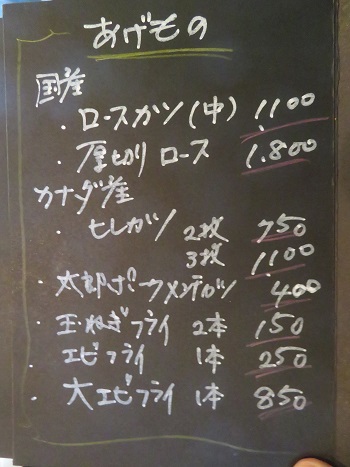 あげもの
国産
・ロースカツ(中) 1.100
・厚切りロース 1.800
カナダ産
・ヒレカツ 2枚 750
3枚 1.100
・太郎ポークメンチカツ 400
・玉ねぎフライ 2本 150
・エビフライ 1本 250
・大エビフライ 1本 850